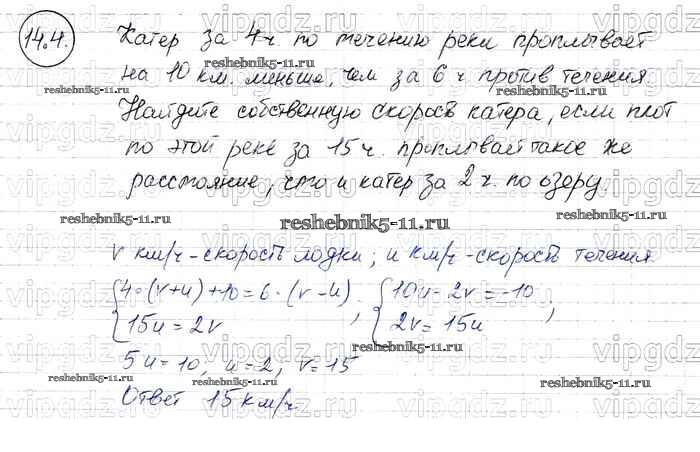 14.4. Катер за 4 ч. по течению реки проплывает
на 10 км. меньше, чем за 6 ч против течения.
Найдите собственную скорость катера, если плот
по этой реке за 15 ч. проплывает такое же
расстояние, что и катер за 2 ч. по озеру.
v км/ч - скорость лодки; u км/ч - скорость течения
{4·(v+u)+10=6·(v-u); {10u-2v=-10;
{15u=2v {2v=15u
5u=10, u=2, v=15
Ответ 15 км/ч
vipgdz
reshebnik5-11.ru